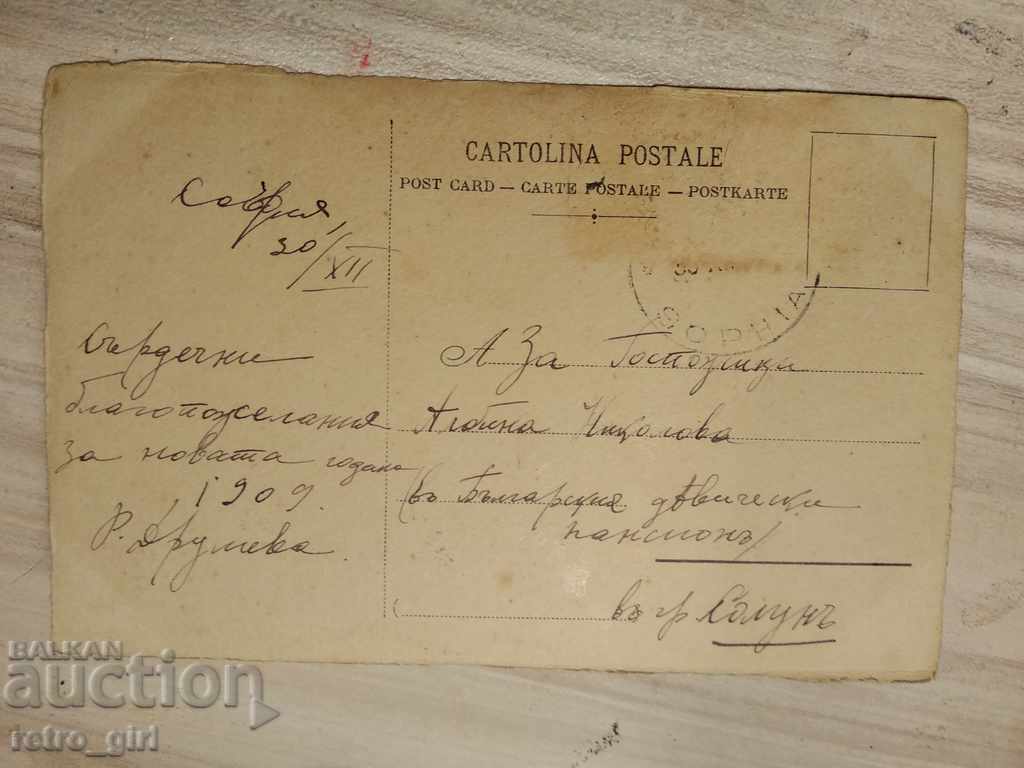 CARTOLINA POSTALE
POST CARD — CARTE POSTALE — POSTKARTE
София,
30/XII
SOPHIA
Сърдечни
благопожелания
за новата година
1909
Р. Друмева.
За Госпожица
Николова
(въ Българския дѣвически
пансионъ)
въ гр Солунъ
BALKAN
auction
retro_girl